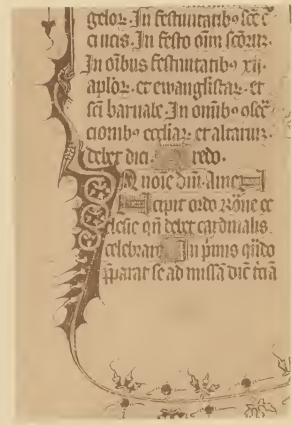 geloꝝ. In festiuitatibꝰ scē
crucis. In festo oīm scōꝝ.
In oībus festiuitatibꝰ xij.
aplōꝝ. et ewangelistaꝝ. et
sci barnabe. In omībꝰ
cionibꝰ eccliaꝝ. et altariuꝝ.
debet dici. Credo.
In noīe dnī. Amen.
Incipit ordo
clesie qn̄ debet cardinalis
celebrare. In p̄mis qn̄do
p̄parat se ad missā dic̄